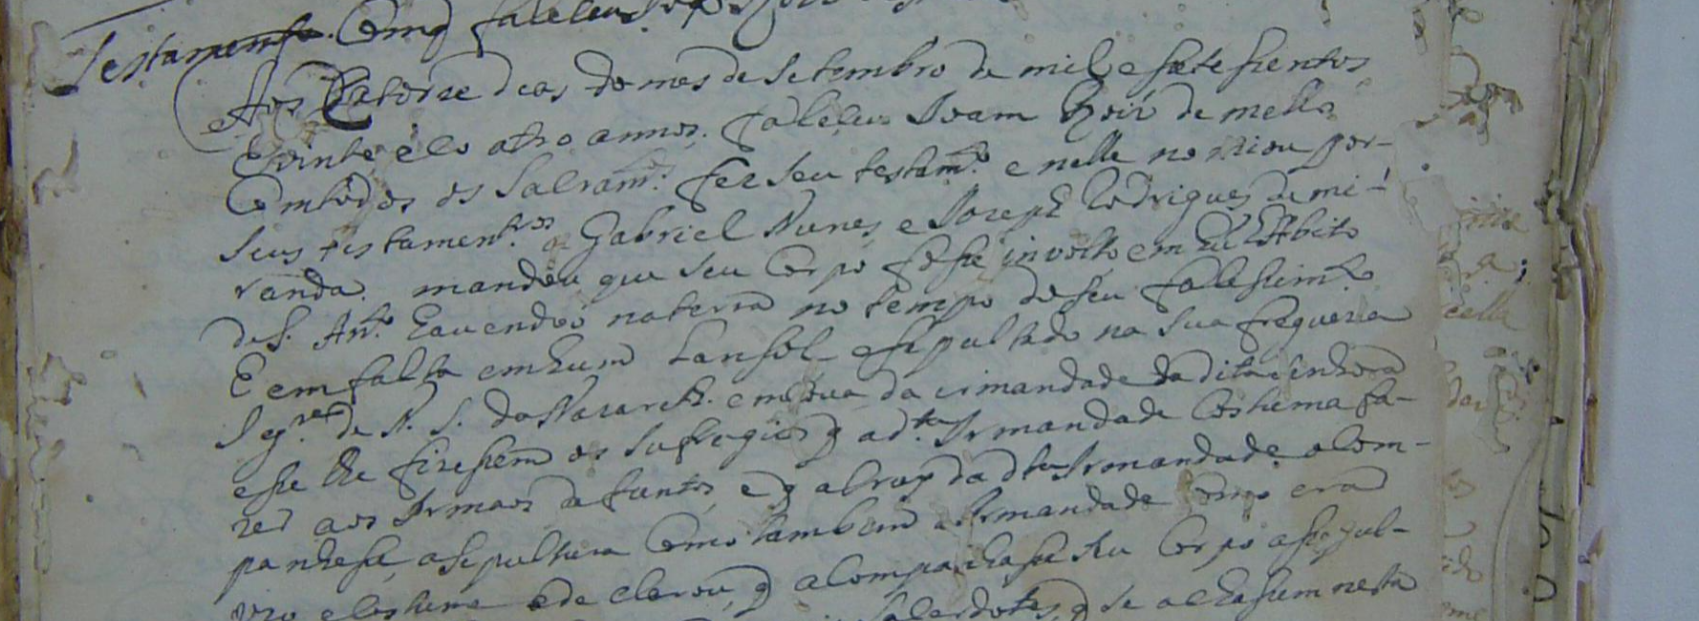 Testamento. Com q faleceu
Aos Catorze dias do mes de Setembro de mil e setesientos
e vinte e coatro annos. faleceu Joam de mello
Com todos os Sacram.tos fez seu testam.to e nelle nomiou por
seus testament.ros a Gabriel Nunes e Joseph Rodrigues de mi-
randa. mandou que seu Corpo fose involto em hũ Abito
de S. Ant.o havendoo na terra no tempo de seu falesim.to
E em falta em hum Lansol e sepultado na sua freguezia
de N. S. da Nazareth. em cova da irmandade da dita Senhora
e se lhe fizesem os sufragios q a d.ta Irmandade Costuma fa-
zer aos Irmaos defuntos, e q a Crus da d.ta Irmandade acom-
panhase, a sepultura Como tambem a Irmandade Como era
uzo e Costume e declarou, q acompanhase seu Corpo a sepul-
Saserdotes, q se achasem nesta